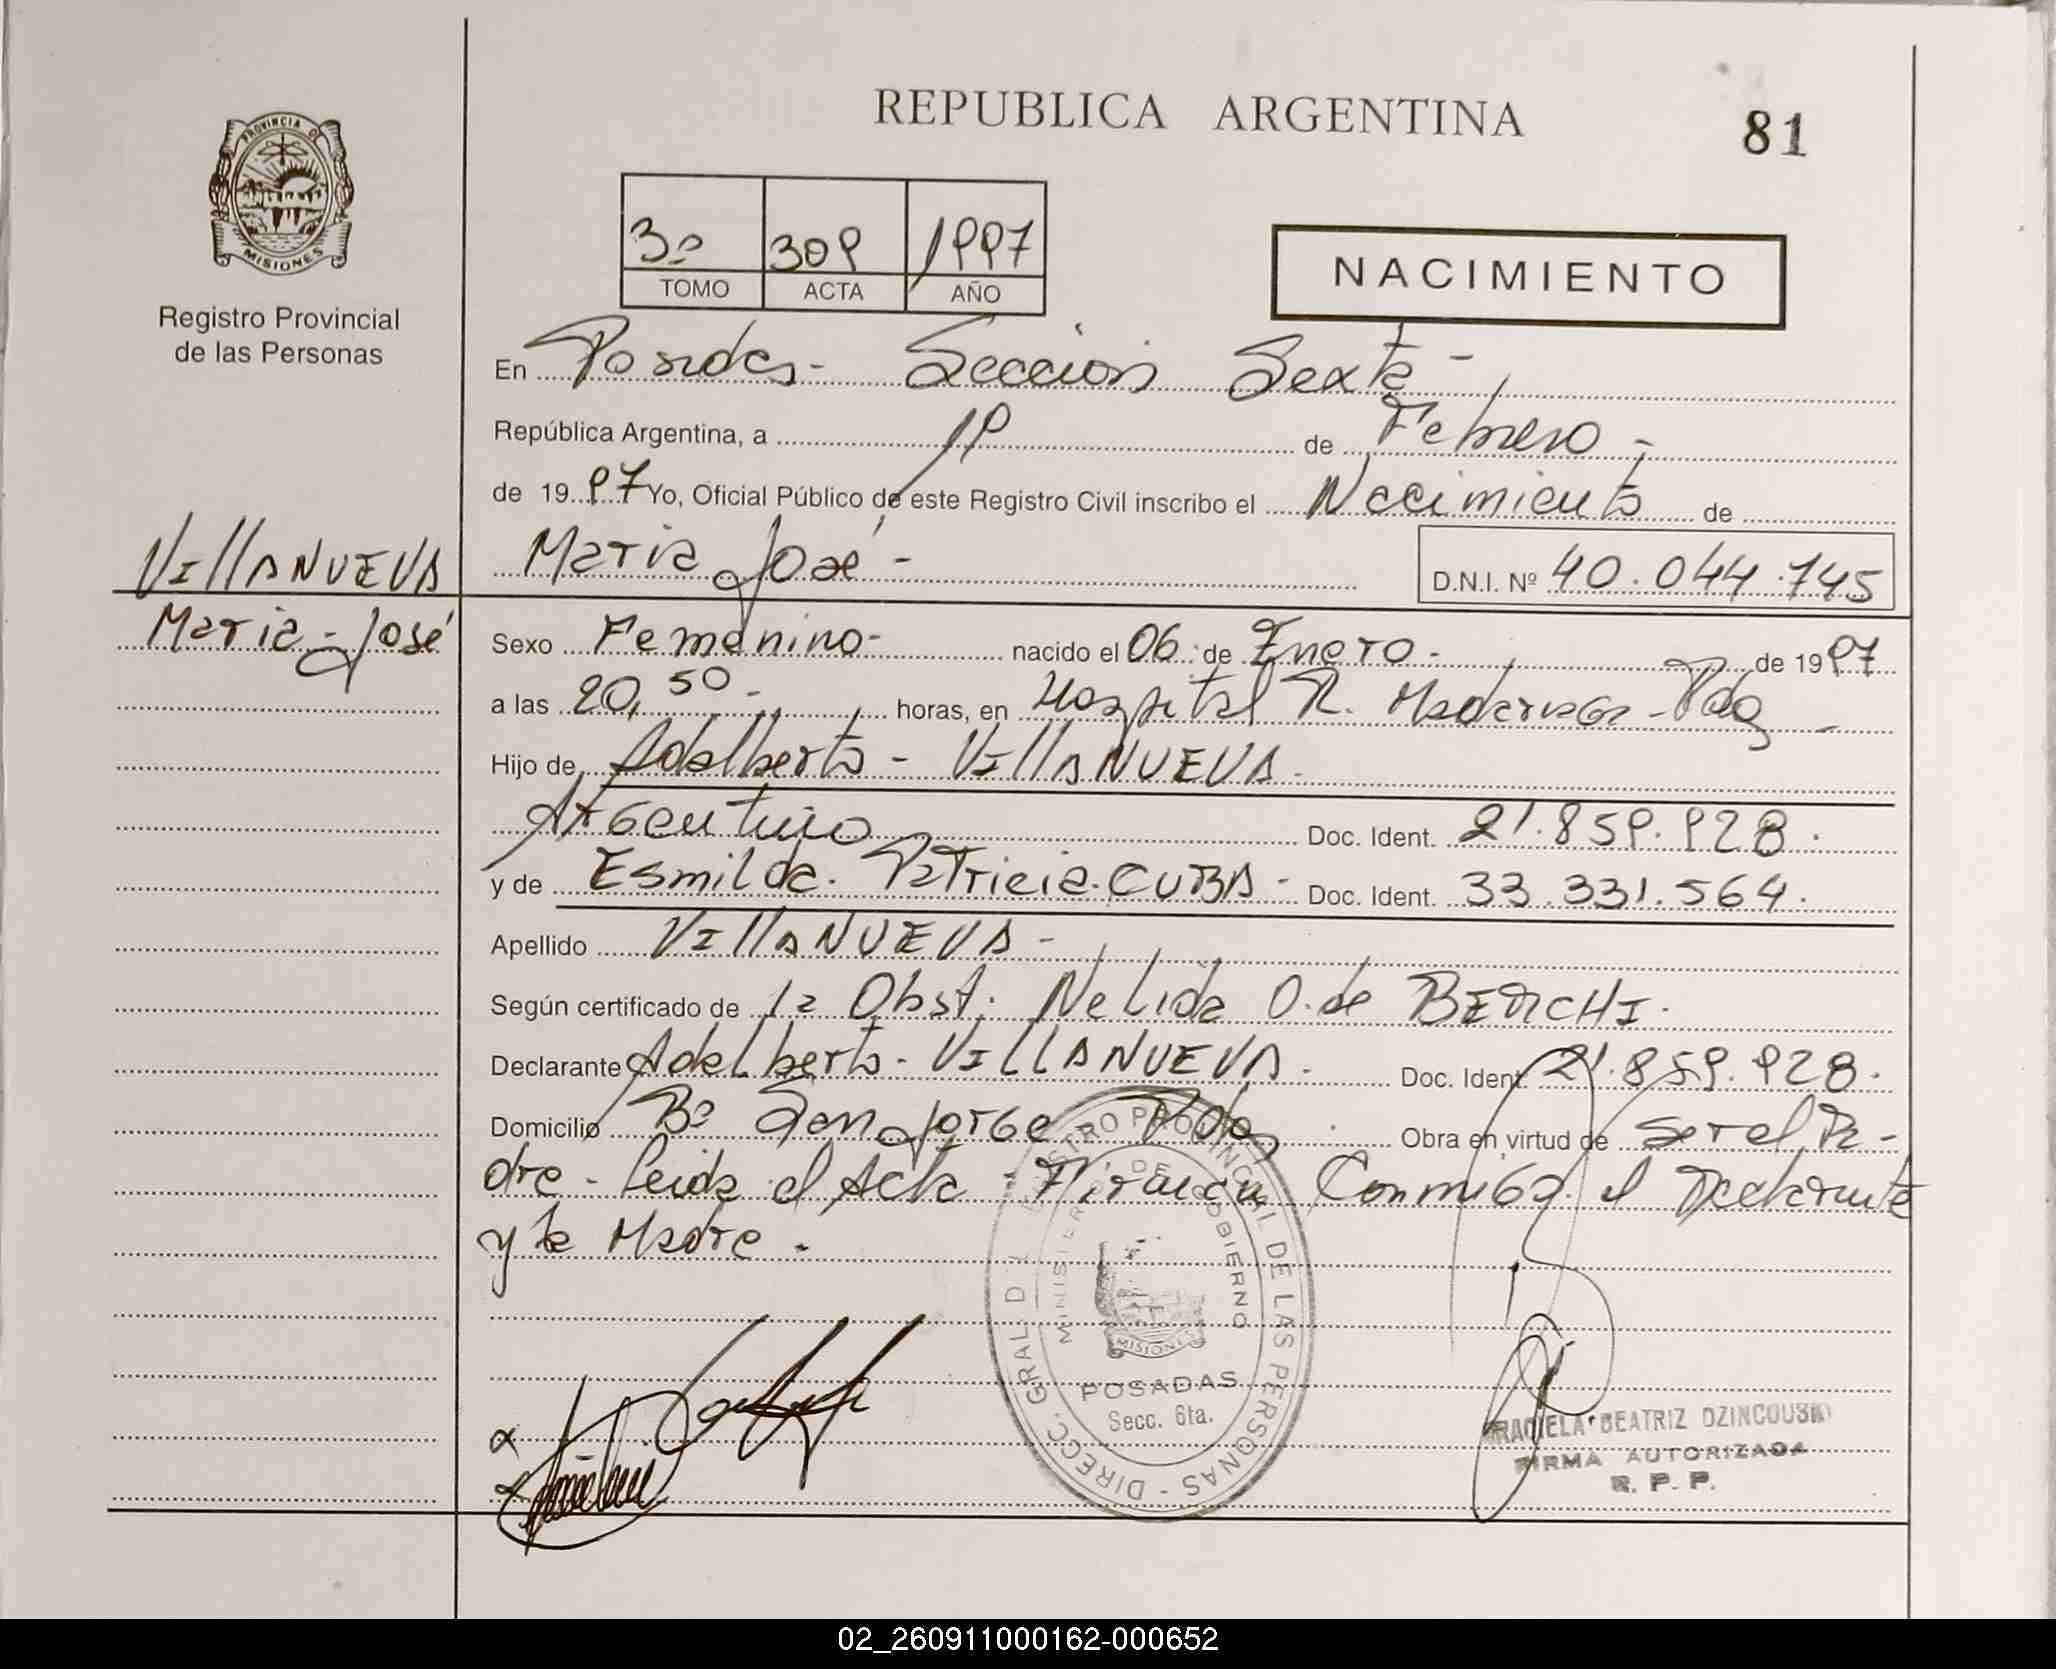 REPUBLICA ARGENTINA
81
PROVINCIA D
MISIONES
Registro Provincial
de las Personas
3º 309 1997
TOMO ACTA AÑO
NACIMIENTO
En Posadas - Sección Sexta -
República Argentina, a 19 de Febrero -
de 1997 Yo, Oficial Público de este Registro Civil inscribo el Nacimiento de
VILLANUEVA
Maria José -
D.N.I. Nº 40.044.745
Maria - José
Sexo Femenino - nacido el 06 de Enero - de 1997
a las 20,50 - horas, en Hospital R. Madariaga - Pdas -
Hijo de Adalberto - VILLANUEVA -
Argentino Doc. Ident. 21.859.928.
y de Esmilda. Patricia. CUBA - Doc. Ident. 33.331.564.
Apellido VILLANUEVA -
Según certificado de la Obst. Nelida O. de
Declarante Adelberto - VILLANUEVA - Doc. Ident. 21.859.928.
Domicilio Bº San Jorge Pdas Obra en virtud de ser el Pa-
dre - Leida el Acta - Firman Conmigo el Declarante
y la Madre.
DIRECC. GRAL. D REGISTRO PROVINCIAL DE LAS PERSONAS -
MINISTERIO DE GOBIERNO
MISIONES
POSADAS
Secc. 6ta.
GRACIELA BEATRIZ DZINCOUSKI
FIRMA AUTORIZADA
R. P. P.
02_260911000162-000652